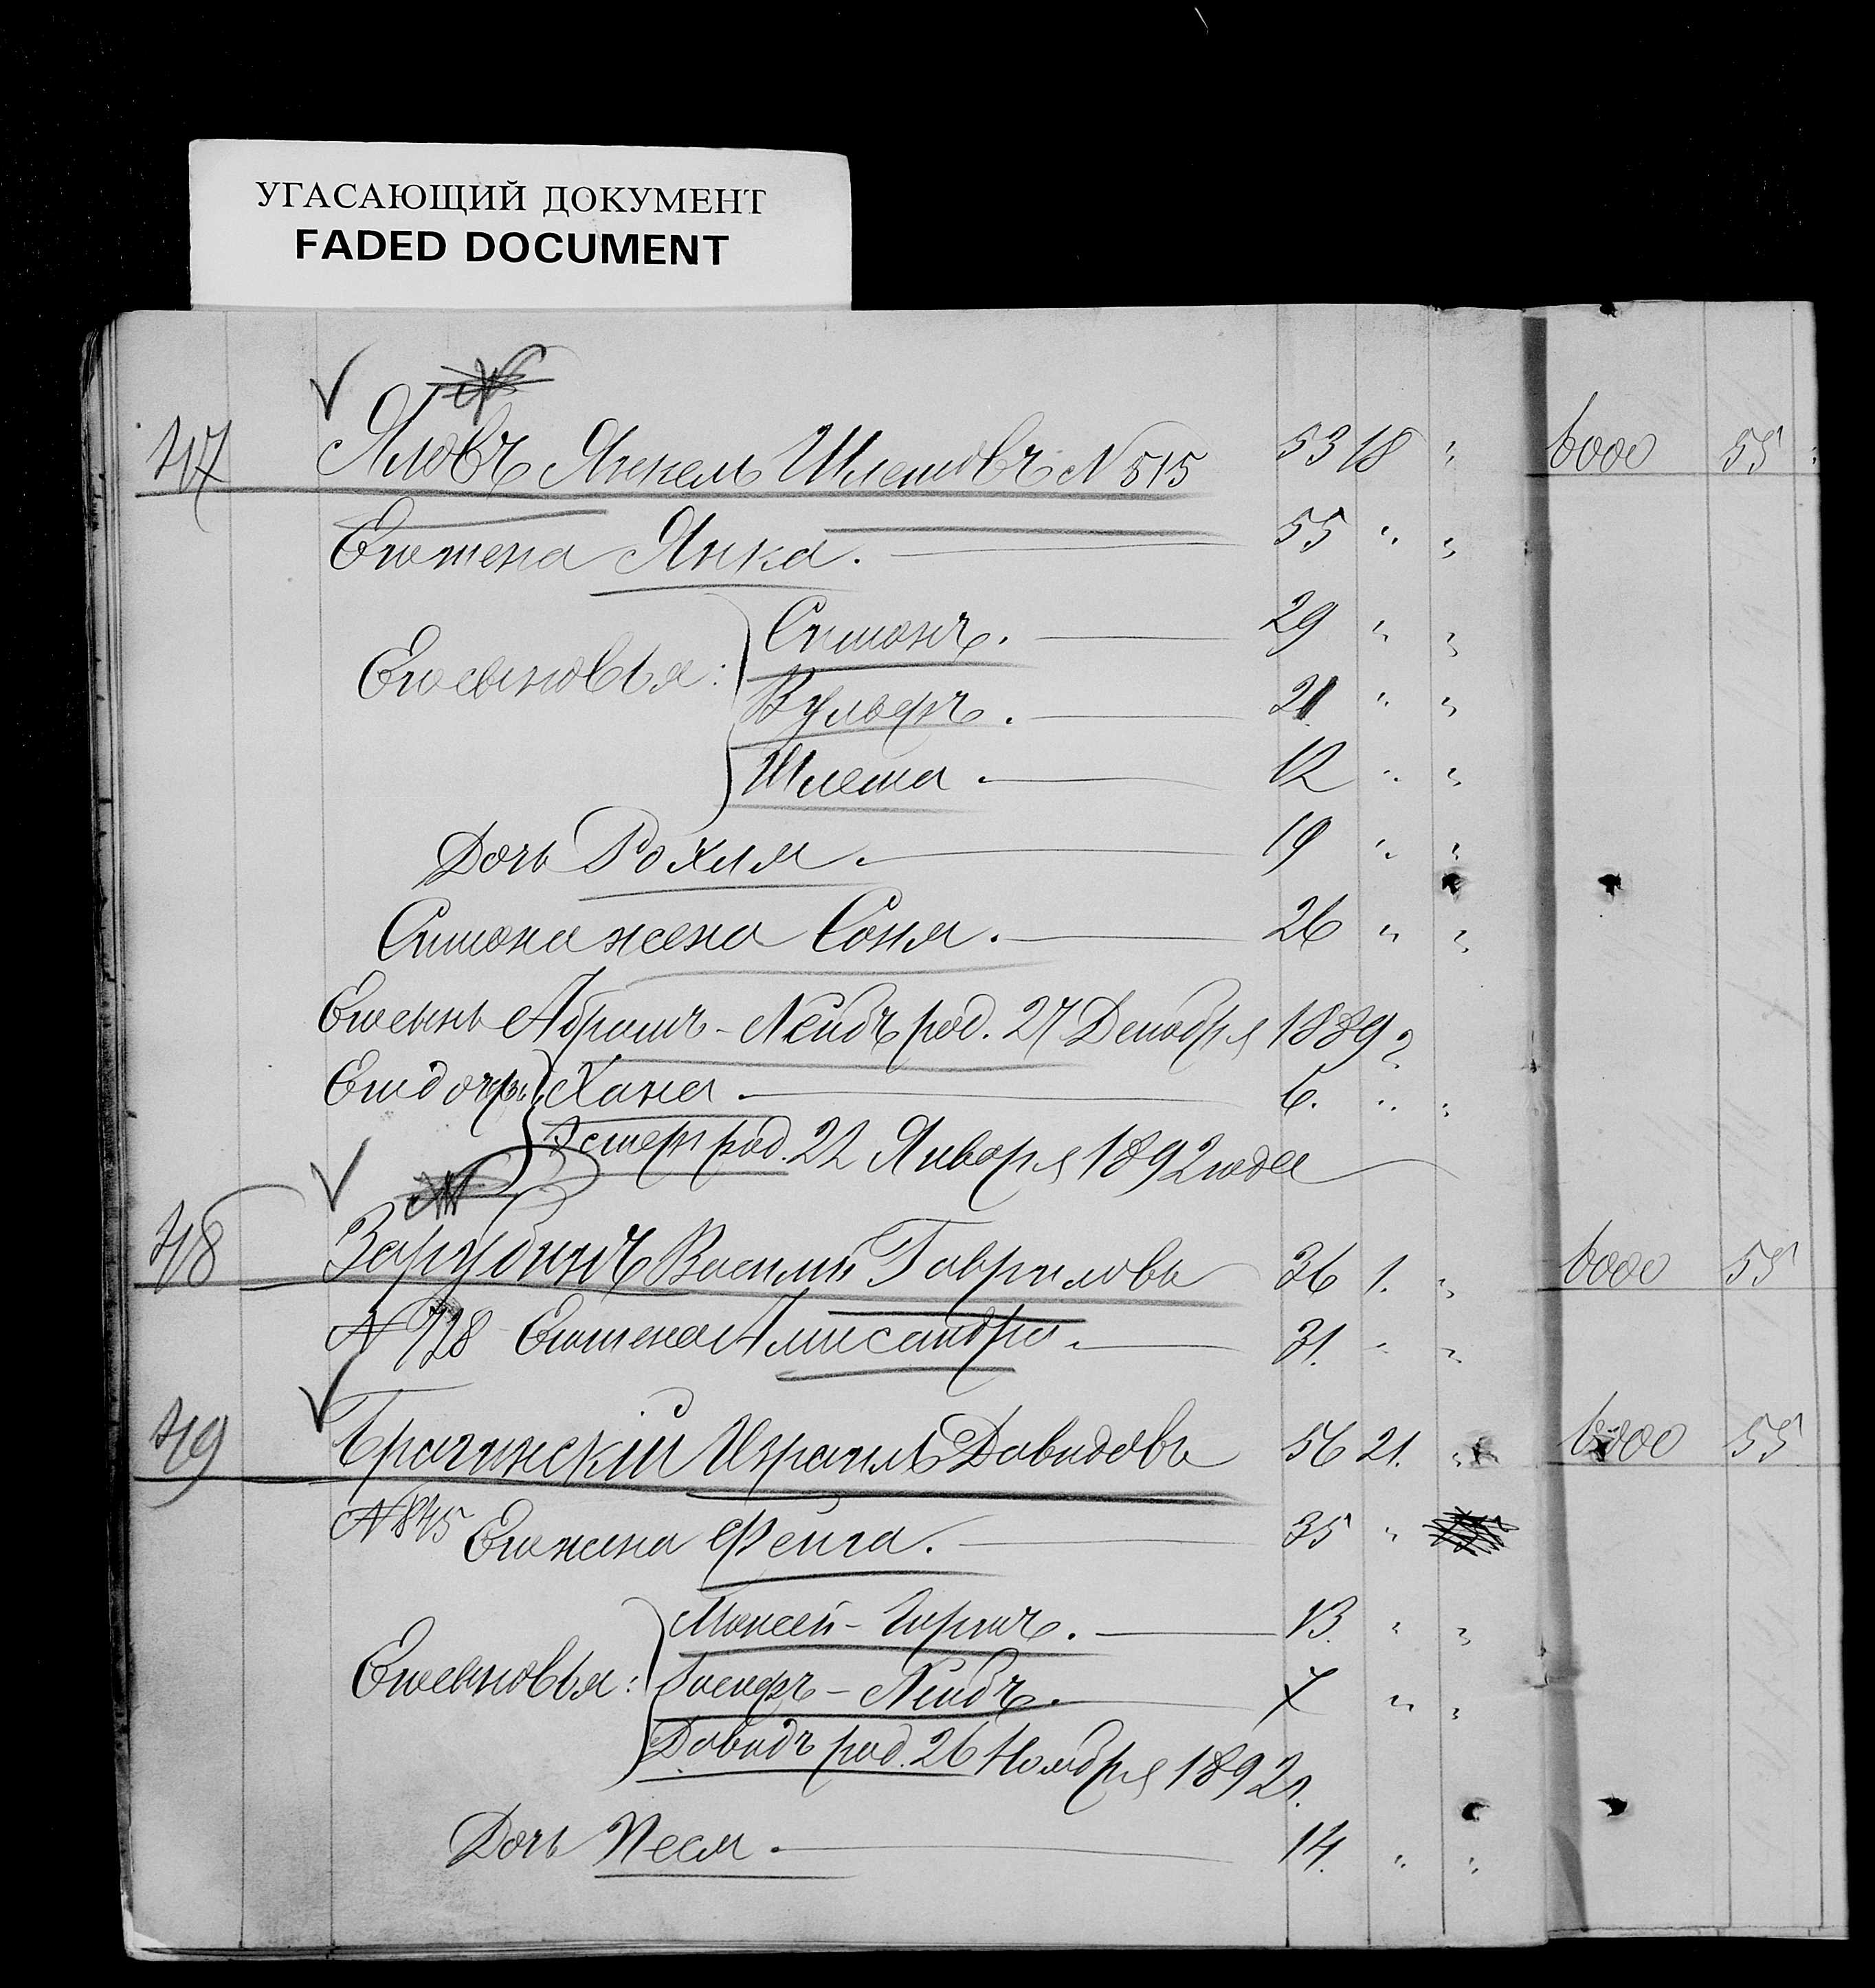 УГАСАЮЩИЙ ДОКУМЕНТ
FADED DOCUMENT
417 Яловъ Янкель Шлемовъ N 515 53 18 " 6000 55
Его жена Янка. 55 " "
Его сыновья: Симонъ. 29 " "
Вульфъ. 21 " "
Шлема. 12 " "
Дочь Рохля. 19 " "
Симона жена Соня. 26 " "
Его сынъ Абрамъ-Лейбъ род. 27 Декабря 1889 г.
Его дочери: Хана 6. " "
Эстеръ род. 22 Января 1892 года
418 Зарубинъ Василій Гавриловъ 36 1. " 6000 55
N 728 Его жена Александра. 31. " "
419 Брагинскій Израиль Давидовъ 56 21. " 6000 55
N 845 Его жена Фейга. 35 "
Его сыновья: Мовсей-Гиршъ. 13. " "
Іосифъ-Лейбъ. 7 " "
Давидъ род. 26 Ноября 1892 г.
Дочь Песя. 14. " "